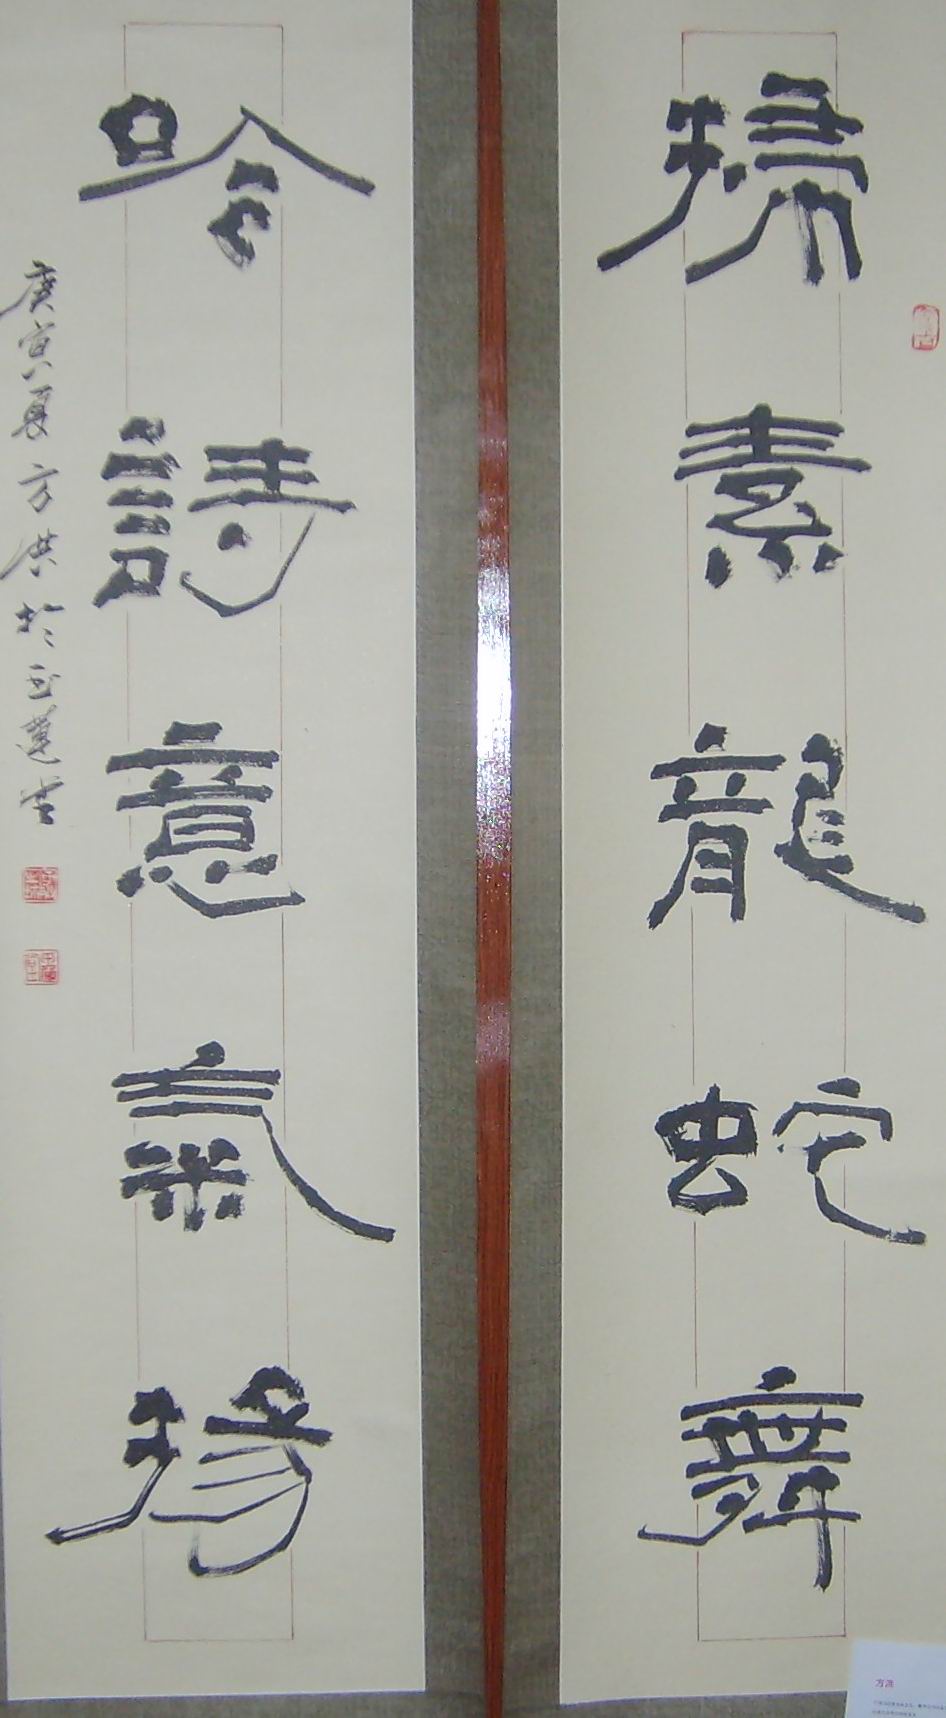 掃素龍蛇舞
吟詩意氣揚
庚寅夏方洪於玉蓮堂
方洪